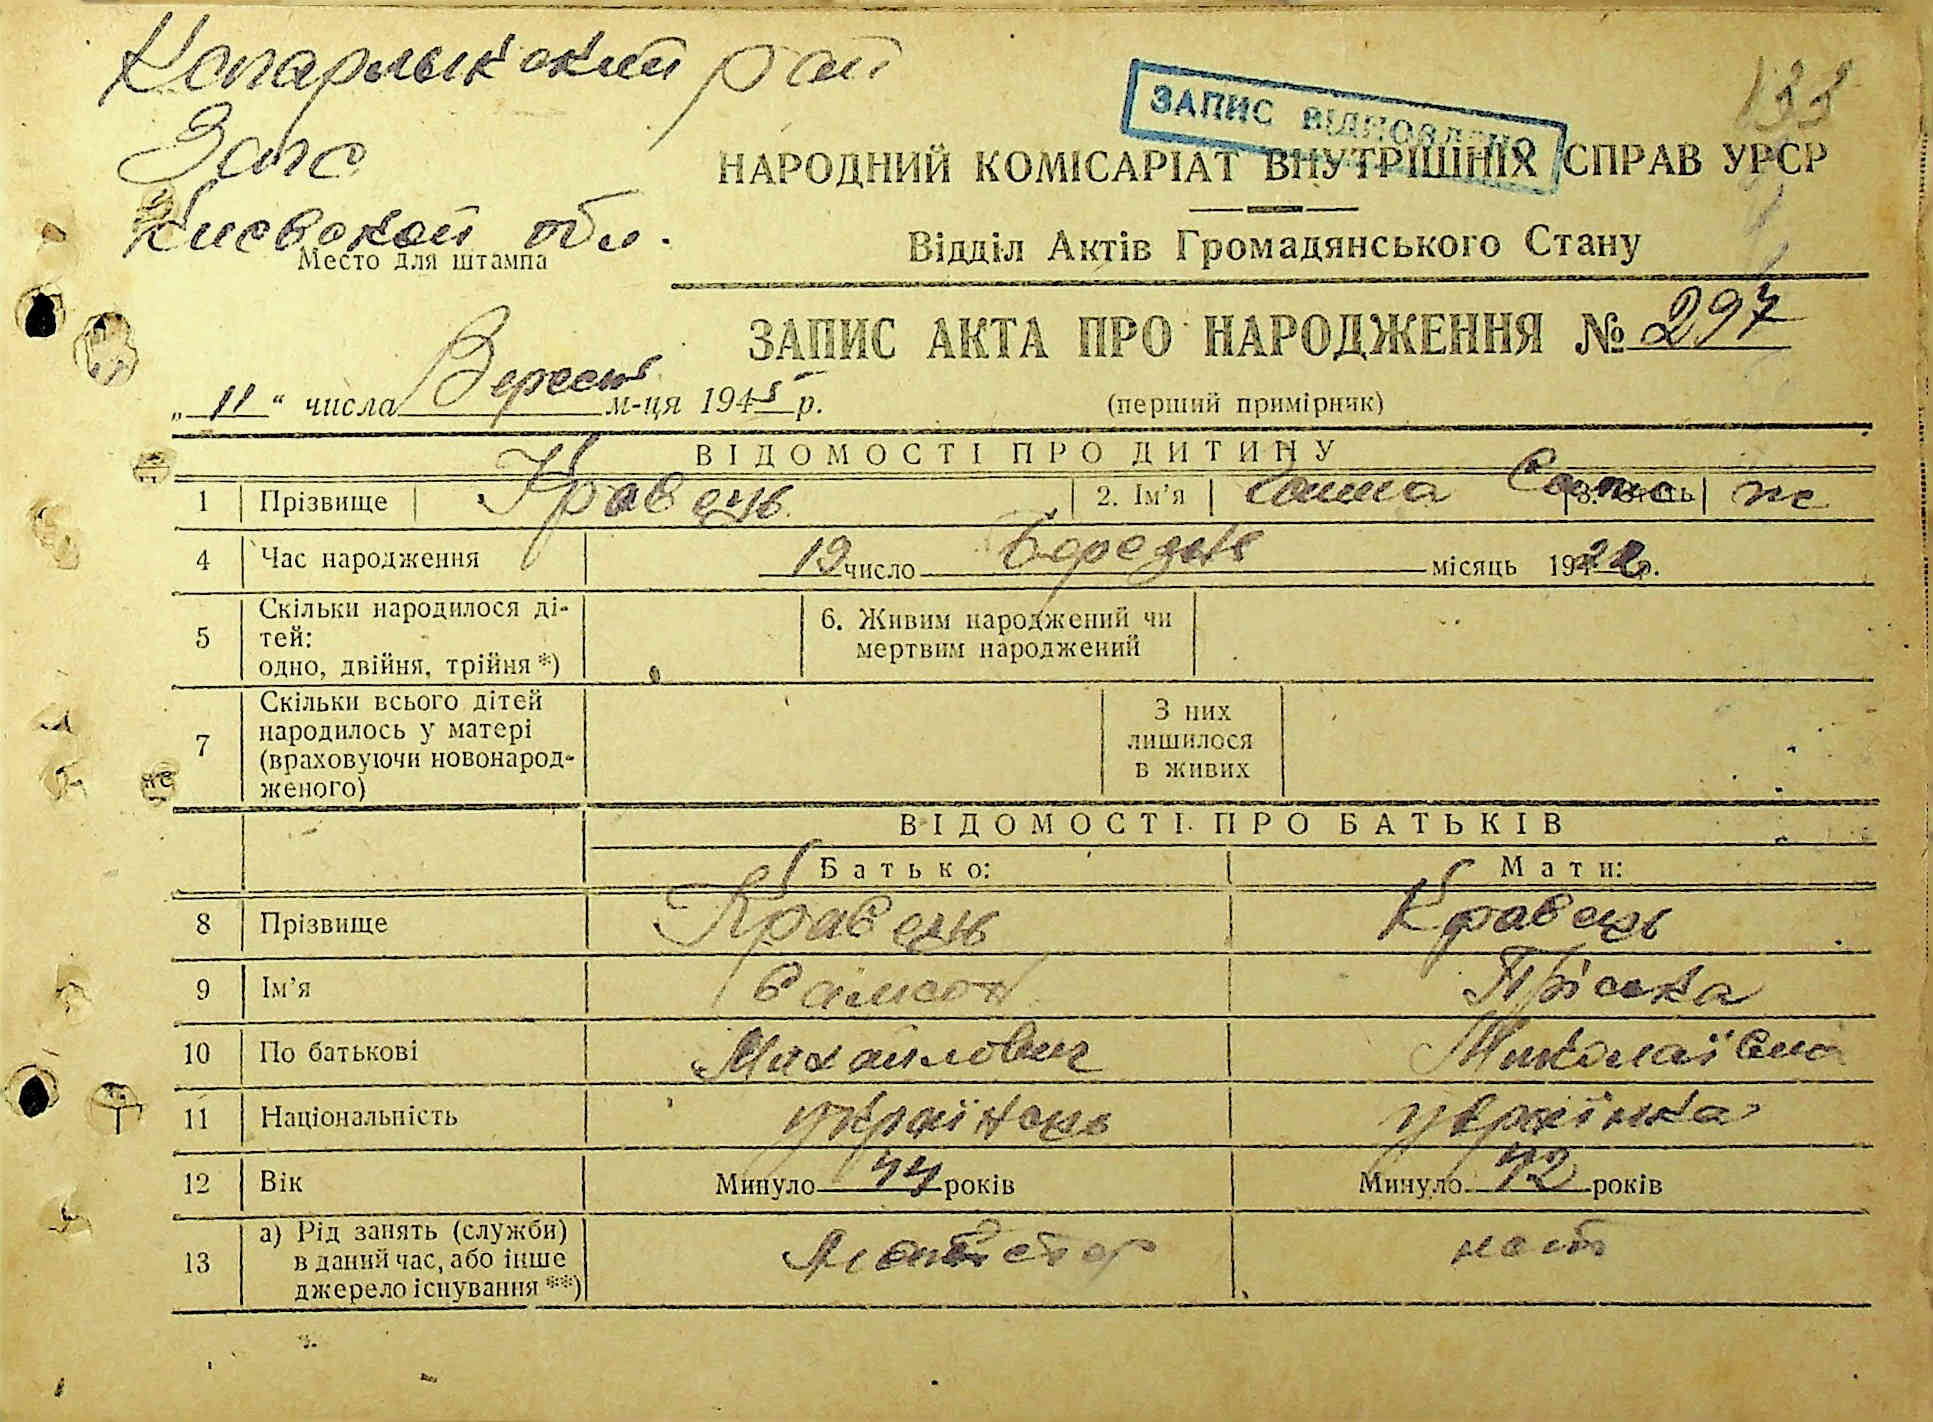 Кагарлыкский рай
Загс
Киевской обл.
Место для штампа
ЗАПИС ВІДНОВЛЕНО
133
НАРОДНИЙ КОМІСАРІАТ ВНУТРІШНІХ СПРАВ УРСР
Відділ Актів Громадянського Стану
ЗАПИС АКТА ПРО НАРОДЖЕННЯ № 297
„ 11 “ числа Вересня м-ця 1945 р.
(перший примірник)
ВІДОМОСТІ ПРО ДИТИНУ
1 Прізвище Кравець 2. Ім’я Ганна Самс 3. Стать ж
4 Час народження 19 число Березня місяць 1922 р.
5 Скільки народилося ді-
тей:
одно, двійня, трійня *)
6. Живим народжений чи
мертвим народжений
7 Скільки всього дітей
народилось у матері
(враховуючи новонарод-
женого)
З них
лишилося
в живих
ВІДОМОСТІ ПРО БАТЬКІВ
Батько: Мати:
8 Прізвище Кравець Кравець
9 Ім’я Самсон Пріська
10 По батькові Михайлович Миколаївна
11 Національність українець українка
12 Вік Минуло 44 років Минуло 42 років
13 а) Рід занять (служби)
в даний час, або інше
джерело існування **)